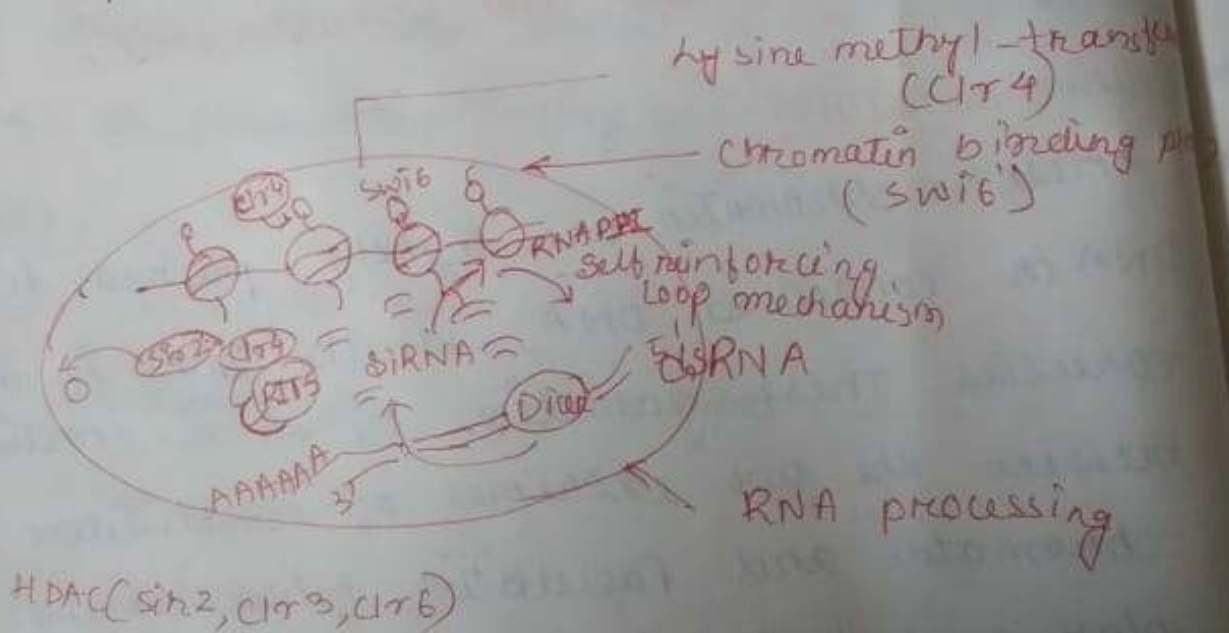 Lysine methyl-transfe
(Clr4)
Chromatin binding
(Swi6)
Clr4
Swi6
RNAPII
Self reinforcing
loop mechanism
Sir2
Clr4
RITS
siRNA
dsRNA
Dicer
AAAAAA
3'
RNA processing
HDAC(sir2, Clr3, Clr6)